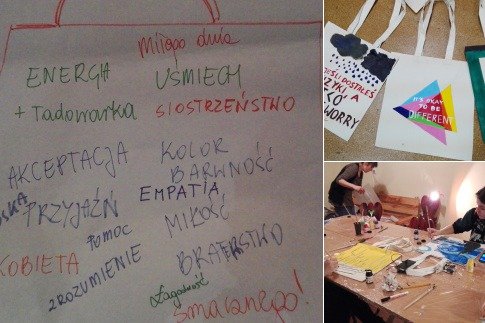 Miłego dnia
ENERGIA
UŚMIECH
+ Tadowarka
SIOSTRZEŃSTWO
AKCEPTACJA
KOLOR
BARWNOŚĆ
PRZYJAŹŃ
EMPATIA
POMOC
MIŁOŚĆ
KOBIETA
ZROZUMIENIE
BRATERSTWO
Łagodność
Smacznego!
DOSTAŁEŚ
WORRY
IT'S OKAY
TO BE
DIFFERENT